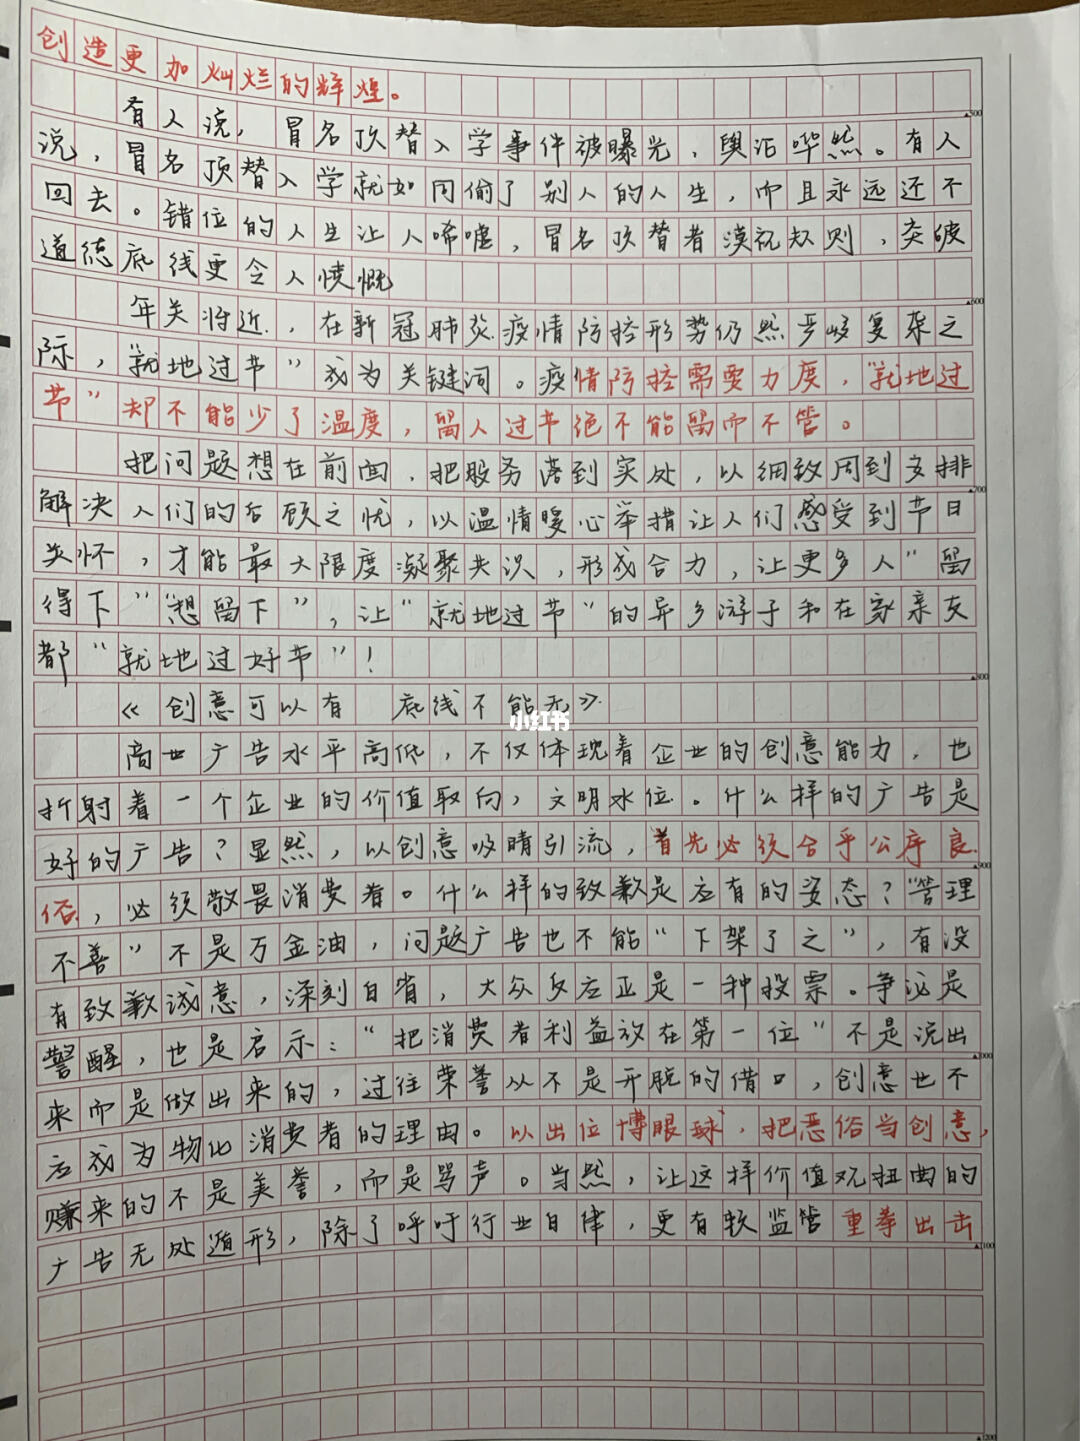 创造更加灿烂的辉煌。
有人说，冒名顶替入学事件被曝光，舆论哗然。有人
说，冒名顶替入学就如同偷了别人的人生，而且永远还不
回去。错位的人生让人唏嘘，冒名顶替者漠视规则，突破
道德底线更令人愤慨
年关将近，在新冠肺炎疫情防控形势仍然严峻复杂之
际，“就地过节”成为关键词。疫情防控需要力度，“就地过
节”却不能少了温度，留人过节绝不能留而不管。
把问题想在前面，把服务落到实处，以细致周到安排
解决人们的后顾之忧，以温情暖心举措让人们感受到节日
关怀，才能最大限度凝聚共识，形成合力，让更多人“留
得下”“想留下”，让“就地过节”的异乡游子和在家亲友
都“就地过好节”！
《创意可以有 底线不能无》
商业广告水平高低，不仅体现着企业的创意能力，也
折射着一个企业的价值取向，文明水位。什么样的广告是
好的广告？显然，以创意吸睛引流，首先必须合乎公序良
俗，必须敬畏消费者。什么样的致歉是应有的姿态？“管理
不善”不是万金油，问题广告也不能“下架了之”，有没
有致歉诚意，深刻自省，大众反应正是一种投票。争议是
警醒，也是启示：“把消费者利益放在第一位”不是说出
来而是做出来的，过往荣誉从不是开脱的借口，创意也不
应成为物化消费者的理由。以出位博眼球，把恶俗当创意，
赚来的不是美誉，而是骂声。当然，让这样价值观扭曲的
广告无处遁形，除了呼吁行业自律，更有软监管重拳出击
500
600
700
800
900
1000
1100
1200
小红书